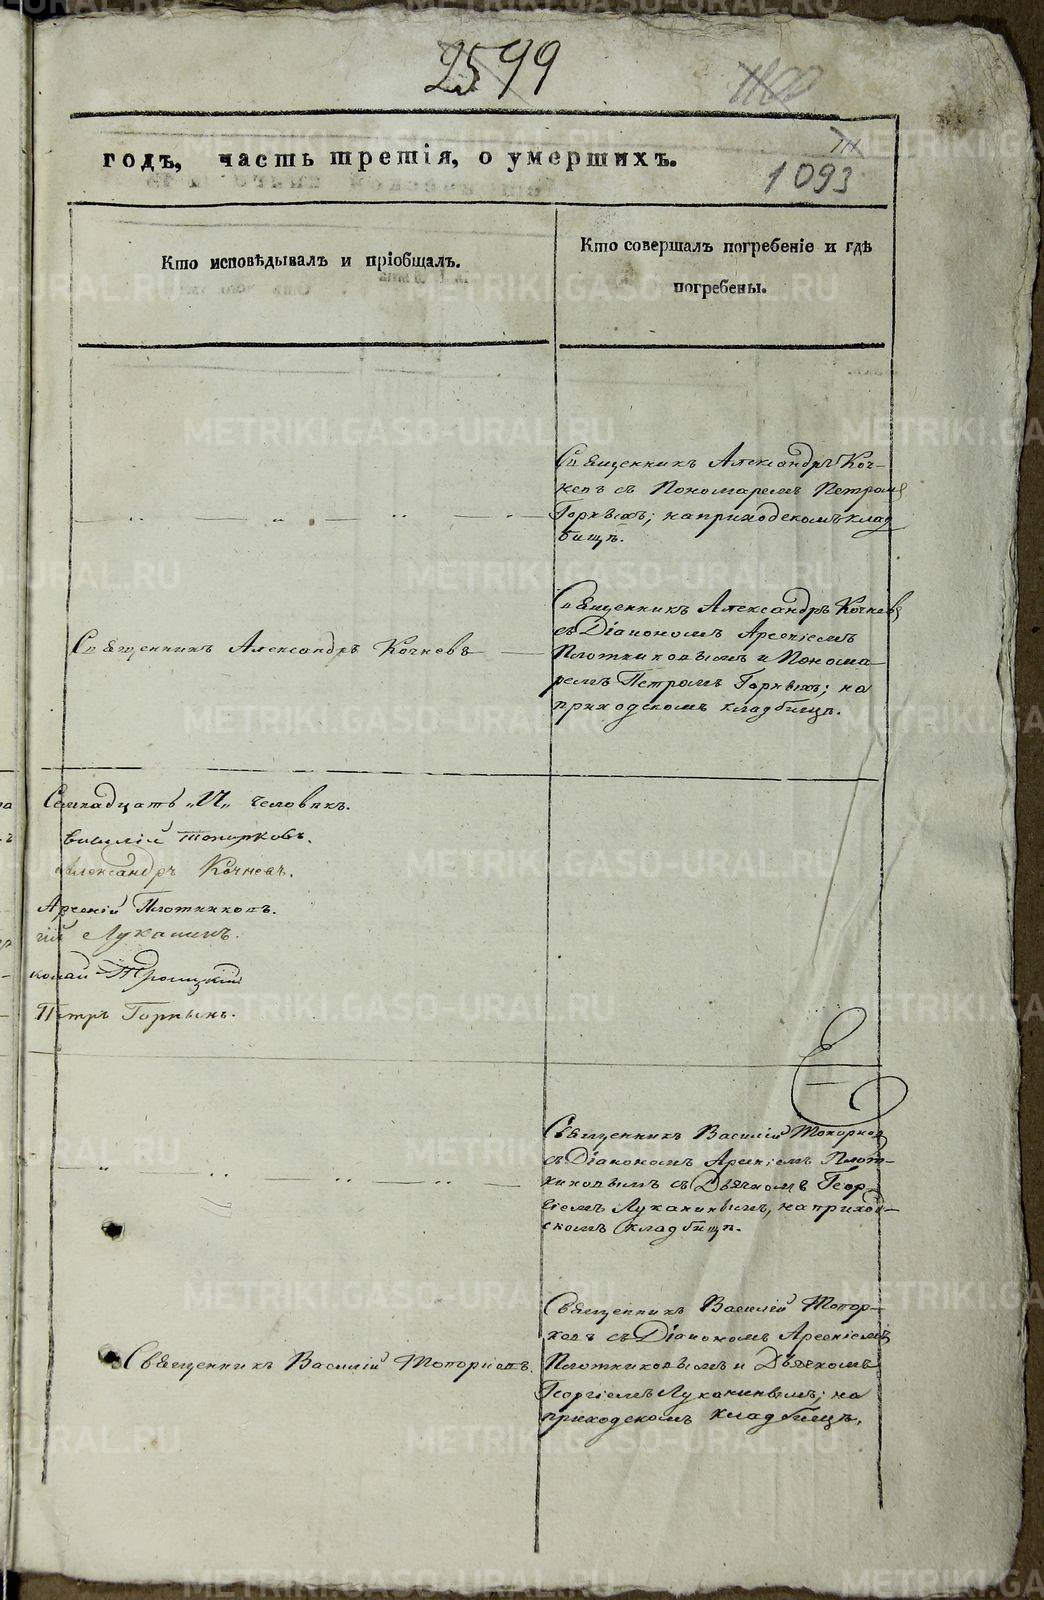 2599
1093
годъ, часть третія, о умершихъ.
Кто исповѣдывалъ и пріобщалъ.
Кто совершалъ погребеніе и гдѣ
погребены.
Священникъ Александръ Коч-
невъ съ Пономаремъ Петромъ
Горныхъ; на приходскомъ клад
бищѣ.
Священникъ Александръ Кочневъ
Священникъ Александръ Кочневъ
съ Діакономъ Арсеніемъ
Плотниковымъ и Понома-
ремъ Петромъ Горныхъ; на
приходскомъ кладбищѣ.
Семнадцать „17„ человѣкъ.
Василій Топорковъ.
Александръ Кочневъ.
Арсеній Плотниковъ.
гій Луканинъ.
колай Троицкій
Петръ Горныхъ.
Священникъ Василій Топорков
съ Діакономъ Арсеніемъ Плот-
никовымъ съ Дьячкомъ Геор-
гіемъ Луканинымъ, на приход-
скомъ кладбищѣ.
Священникъ Василій Топорковъ.
Священникъ Василій Топор-
ковъ съ Діакономъ Арсеніемъ
Плотниковымъ и Дьячкомъ
Георгіемъ Луканинымъ; на
приходскомъ кладбищѣ.
METRIKI.GASO-URAL.RU